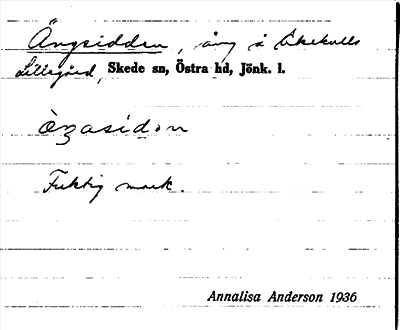 Ängsidden, äng å Ekekulls
Lillegård, Skede sn, Östra hd, Jönk. l.
Fuktig mark.
Annalisa Anderson 1936